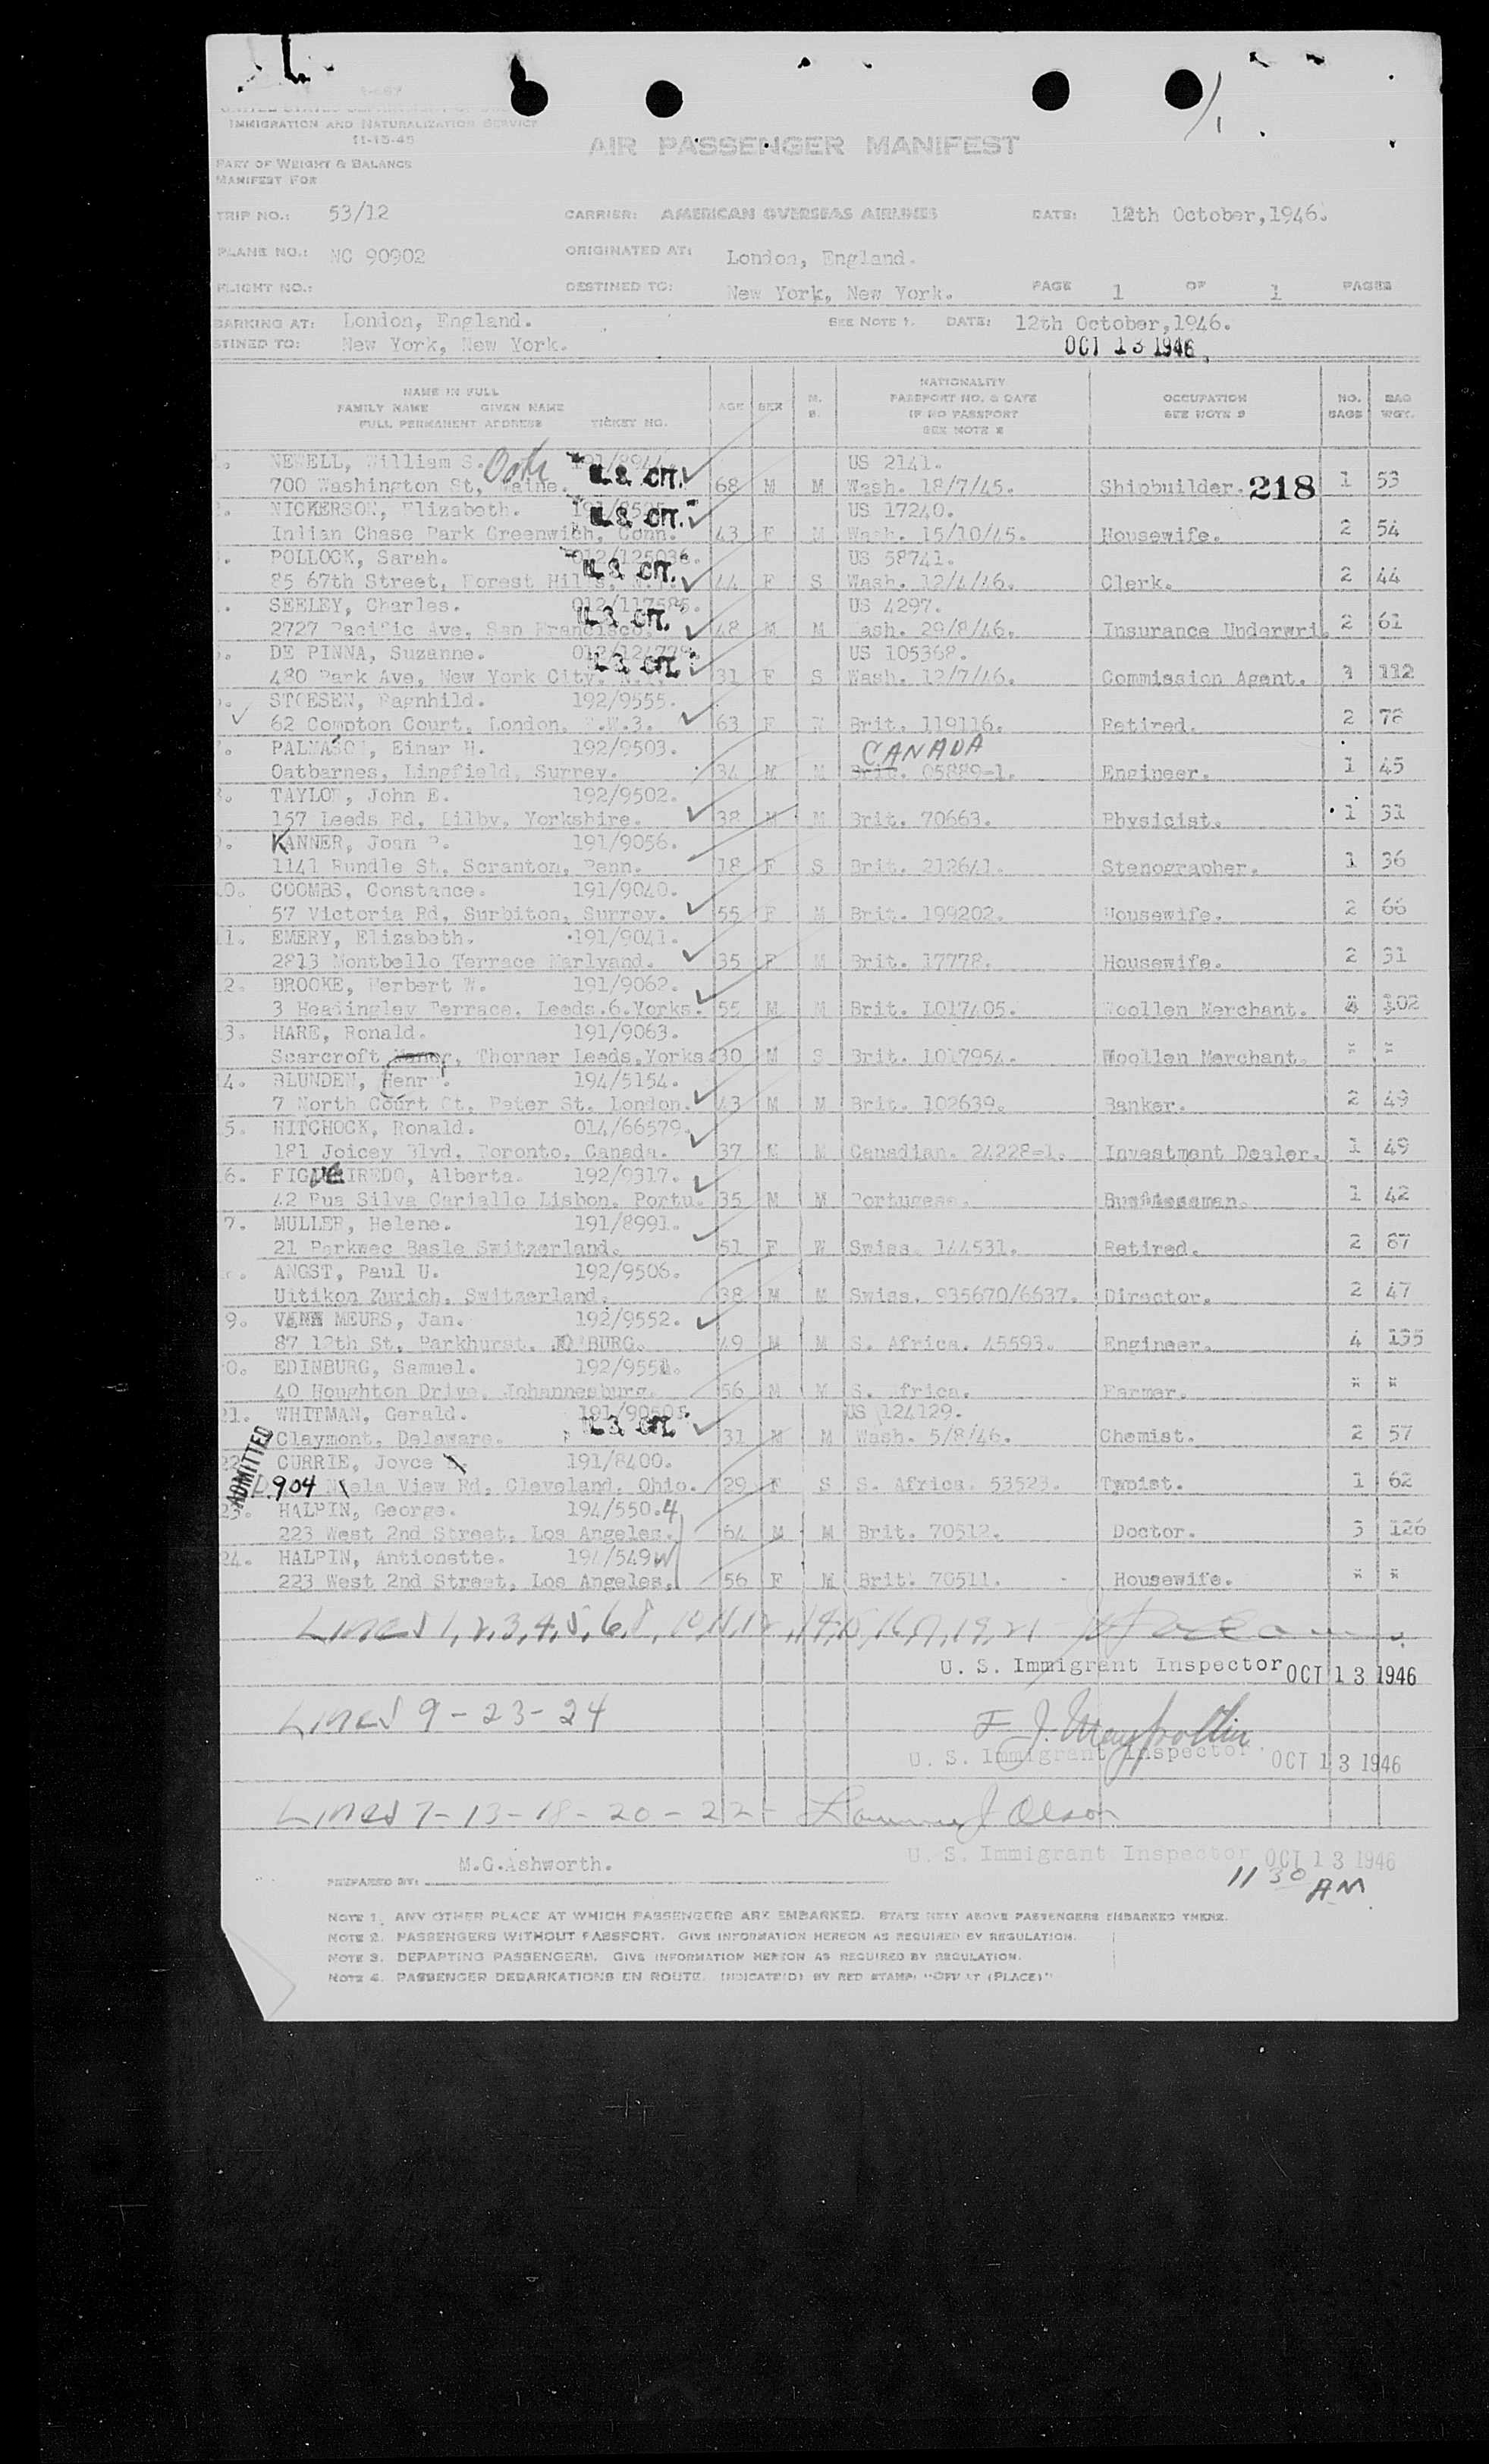 IMMIGRATION AND NATURALIZATION SERVICE
11-15-45
AIR PASSENGER MANIFEST
PART OF WEIGHT & BALANCE
MANIFEST FOR
TRIP NO.: 53/12 CARRIER: AMERICAN OVERSEAS AIRLINES DATE: 12th October,1946.
PLANE NO.: NC 90902 ORIGINATED AT: London, England.
FLIGHT NO.: DESTINED TO: New York, New York. PAGE 1 OF 1 PAGES
BARKING AT: London, England. SEE NOTE 1. DATE: 12th October,1946.
STINED TO: New York, New York. OCT 13 1946
NAME IN FULL
FAMILY NAME GIVEN NAME
FULL PERMANENT ADDRESS TICKET NO. AGE SEX M. S. NATIONALITY PASSPORT NO. & DATE IF NO PASSPORT SEE NOTE 2 OCCUPATION SEE NOTE 3 NO. BAGS BAG WGT.
NEWELL, William S. US 2141.
700 Washington St, Maine. U.S. CIT. 68 M M Wash. 18/7/45. Shipbuilder. 218 1 53
NICKERSON, Elizabeth. U.S. CIT. US 17240.
Indian Chase Park Greenwich, Conn. 43 F M Wash. 15/10/45. Housewife. 2 54
POLLOCK, Sarah. 012/125036. US 58741.
85 67th Street, Forest Hills, U.S. CIT. 44 F S Wash. 12/4/46. Clerk. 2 44
SEELEY, Charles. 012/117585. US 4297.
2727 Pacific Ave, San Francisco. U.S. CIT. 48 M M Wash. 29/8/46. Insurance Underwri. 2 61
DE PINNA, Suzanne. US 105368.
480 Park Ave, New York City. U.S. CIT. 31 F S Wash. 12/7/46. Commission Agent. 112
STOESEN, Ragnhild. 192/9555.
62 Compton Court, London, 63 F Brit. 119116. Retired. 2 78
PALMASON, Einar H. 192/9503. CANADA
Oatbarnes, Lingfield, Surrey. 34 M M Brit. 05889-1. Engineer. 1 45
TAYLOR, John E. 192/9502.
157 Leeds Rd, Yorkshire. 38 M M Brit. 70663. Physicist. 1 31
KANNER, Joan 191/9056.
1141 Rundle St, Scranton, Penn. 18 F S Brit. 212641. Stenographer. 1 36
0. COOMBS, Constance. 191/9040.
57 Victoria Rd, Surbiton, Surrey. 55 F M Brit. 199202. Housewife. 2 66
1. EMERY, Elizabeth. 191/9041.
2813 Montbello Terrace Marlyand. 35 F M Brit. 17778. Housewife. 2 31
2. BROOKE, Herbert W. 191/9062.
3 Headingley Terrace, Leeds.6.Yorks. 55 M M Brit. 1017405. Woollen Merchant. 4 102
3. HARE, Ronald. 191/9063.
Scarcroft Manor, Thorner Leeds,Yorks. 30 M S Brit. 1017954. Woollen Merchant. " "
4. BLUNDEN, Henry. 194/5154.
7 North Court Gt, Peter St. London. 43 M M Brit. 102639. Banker. 2 49
5. HITCHOCK, Ronald. 014/66579.
181 Joicey Blvd. Toronto, Canada. 37 M M Canadian. 24228-1. Investment Dealer. 1 49
6. FIGUEIREDO, Alberta. 192/9317.
42 Rua Silva Cariallo Lisbon. Portu. 35 M M Portugese. Businessman. 1 42
7. MULLER, Helene. 191/8991.
21 Parkweg Basle Switzerland. 51 F W Swiss. 144531. Retired. 2 67
ANGST, Paul U. 192/9506.
Uitikon Zurich, Switzerland. 38 M M Swiss. 935670/6637. Director. 2 47
9. VAN MEURS, Jan. 192/9552.
87 12th St, Parkhurst. JO'BURG. 49 M M S. Africa. 45593. Engineer. 4 135
0. EDINBURG, Samuel. 192/9551.
40 Houghton Drive, Johannesburg. 56 M M S. Africa. Farmer. " "
21. WHITMAN, Gerald. US 124129.
Claymont, Delaware. U.S. CIT. 31 M M Wash. 5/8/46. Chemist. 2 57
22. CURRIE, Joyce 191/8400.
ADMITTED 904 Nela View Rd, Cleveland, Ohio. 29 F S S. Africa. 53523. Typist. 1 62
23. HALPIN, George. 194/550.4
223 West 2nd Street, Los Angeles. 64 M M Brit. 70512. Doctor. 3 126
24. HALPIN, Antionette. 194/549
223 West 2nd Street, Los Angeles. 56 F M Brit. 70511. Housewife. " "
Lines 1, 2, 3, 4, 5, 6, 8, 10, 11, 12, 14, 15, 16, 17, 19, 21
U. S. Immigrant Inspector OCT 13 1946
Lines 9 - 23 - 24 F. J.
U. S. Immigrant Inspector OCT 13 1946
Lines 7 - 13 - 18 - 20 - 22 - J Olson
U. S. Immigrant Inspector OCT 13 1946
11 30 AM
M.G.Ashworth.
PREPARED BY:
NOTE 1. ANY OTHER PLACE AT WHICH PASSENGERS ARE EMBARKED. STATE NEXT ABOVE PASSENGERS EMBARKED THERE.
NOTE 2. PASSENGERS WITHOUT PASSPORT. GIVE INFORMATION HEREON AS REQUIRED BY REGULATION.
NOTE 3. DEPARTING PASSENGERS. GIVE INFORMATION HEREON AS REQUIRED BY REGULATION.
NOTE 4. PASSENGER DEBARKATIONS EN ROUTE. INDICATE(D) BY RED STAMP: "OFF AT (PLACE)"